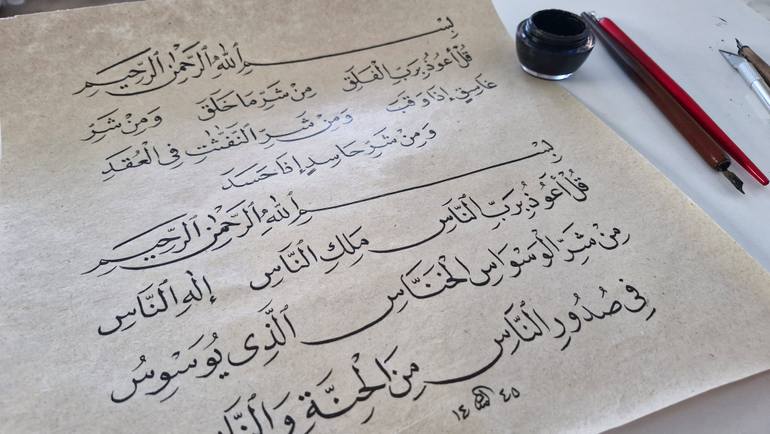 بِسْمِ ٱللَّهِ ٱلرَّحْمَٰنِ ٱلرَّحِيمِ
قُلْ أَعُوذُ بِرَبِّ ٱلْفَلَقِ مِنْ شَرِّ مَا خَلَقَ وَمِنْ شَرِّ
غَاسِقٍ إِذَا وَقَبَ وَمِنْ شَرِّ ٱلنَّفَّٰثَٰتِ فِي ٱلْعُقَدِ
وَمِنْ شَرِّ حَاسِدٍ إِذَا حَسَدَ
بِسْمِ ٱللَّهِ ٱلرَّحْمَٰنِ ٱلرَّحِيمِ
قُلْ أَعُوذُ بِرَبِّ ٱلنَّاسِ مَلِكِ ٱلنَّاسِ إِلَٰهِ ٱلنَّاسِ
مِنْ شَرِّ ٱلْوَسْوَاسِ ٱلْخَنَّاسِ ٱلَّذِي يُوَسْوِسُ
فِي صُدُورِ ٱلنَّاسِ مِنَ ٱلْجِنَّةِ وَٱلنَّاسِ
١٤٤٥